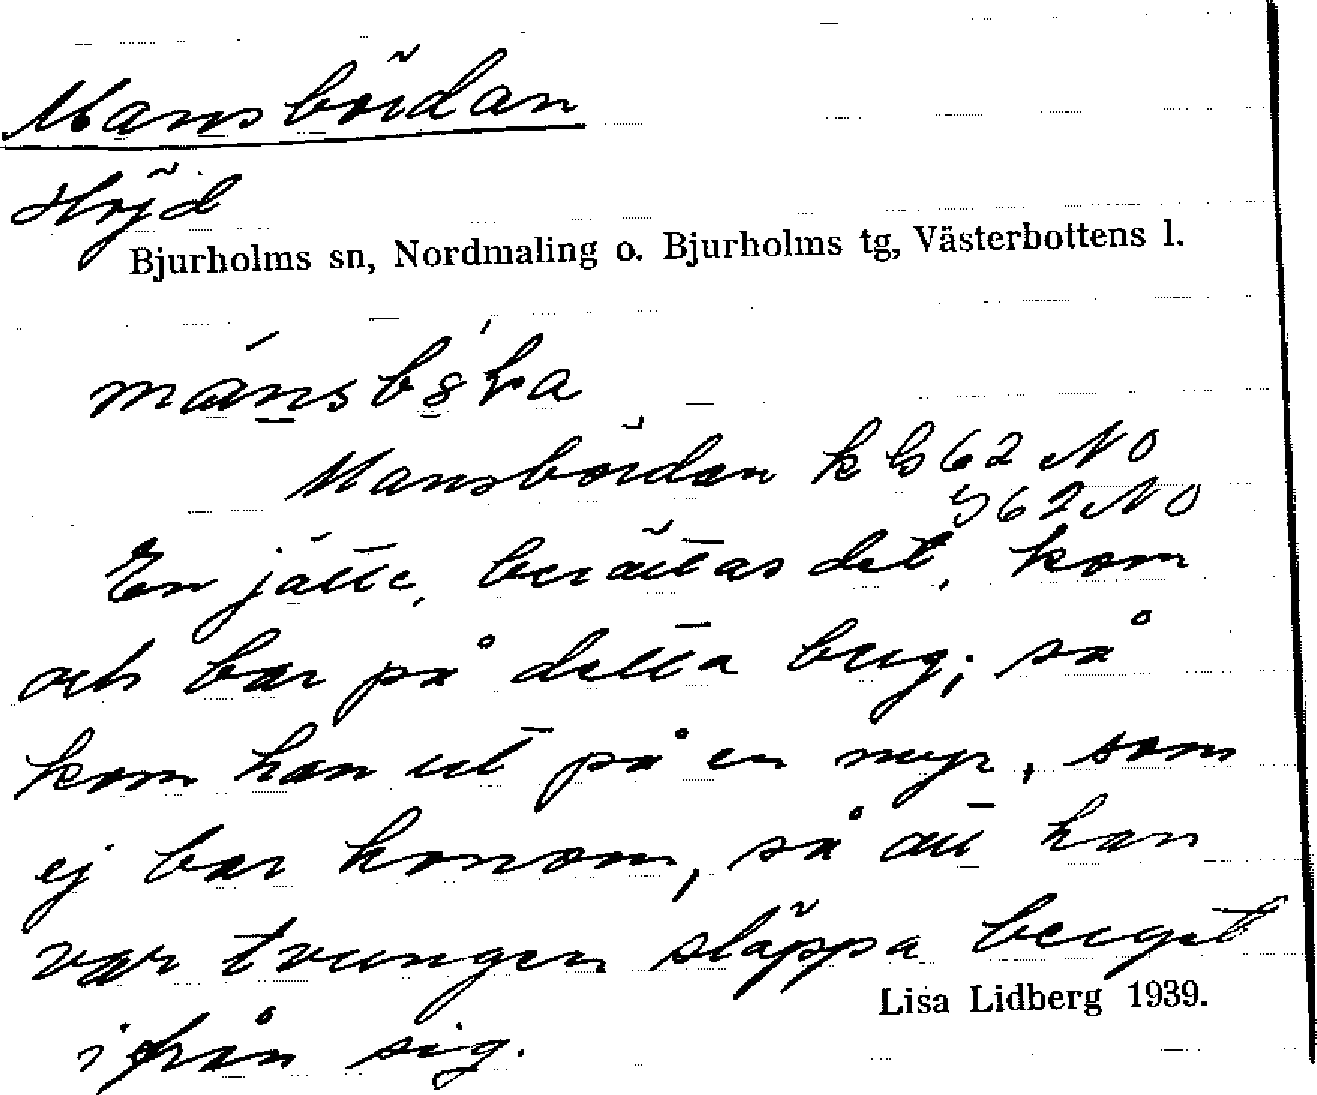 Mansbördan
Höjd
Bjurholms sn, Nordmaling o. Bjurholms tg, Västerbottens l.
Mansbördan k b 62 NO
g 62 NO
En jätte, berättas det, kom
och bar på detta berg; så
kom han ut på en myr, som
ej bar honom, så att han
var tvungen släppa berget
ifrån sig.
Lisa Lidberg 1939.